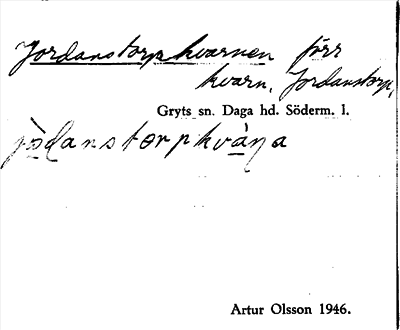 Jordanstorpkvarnen förr
kvarn, Jordanstorp,
Gryts sn. Daga hd. Söderm. l.
jò̱danstorpkvà̱ṇa
Artur Olsson 1946.